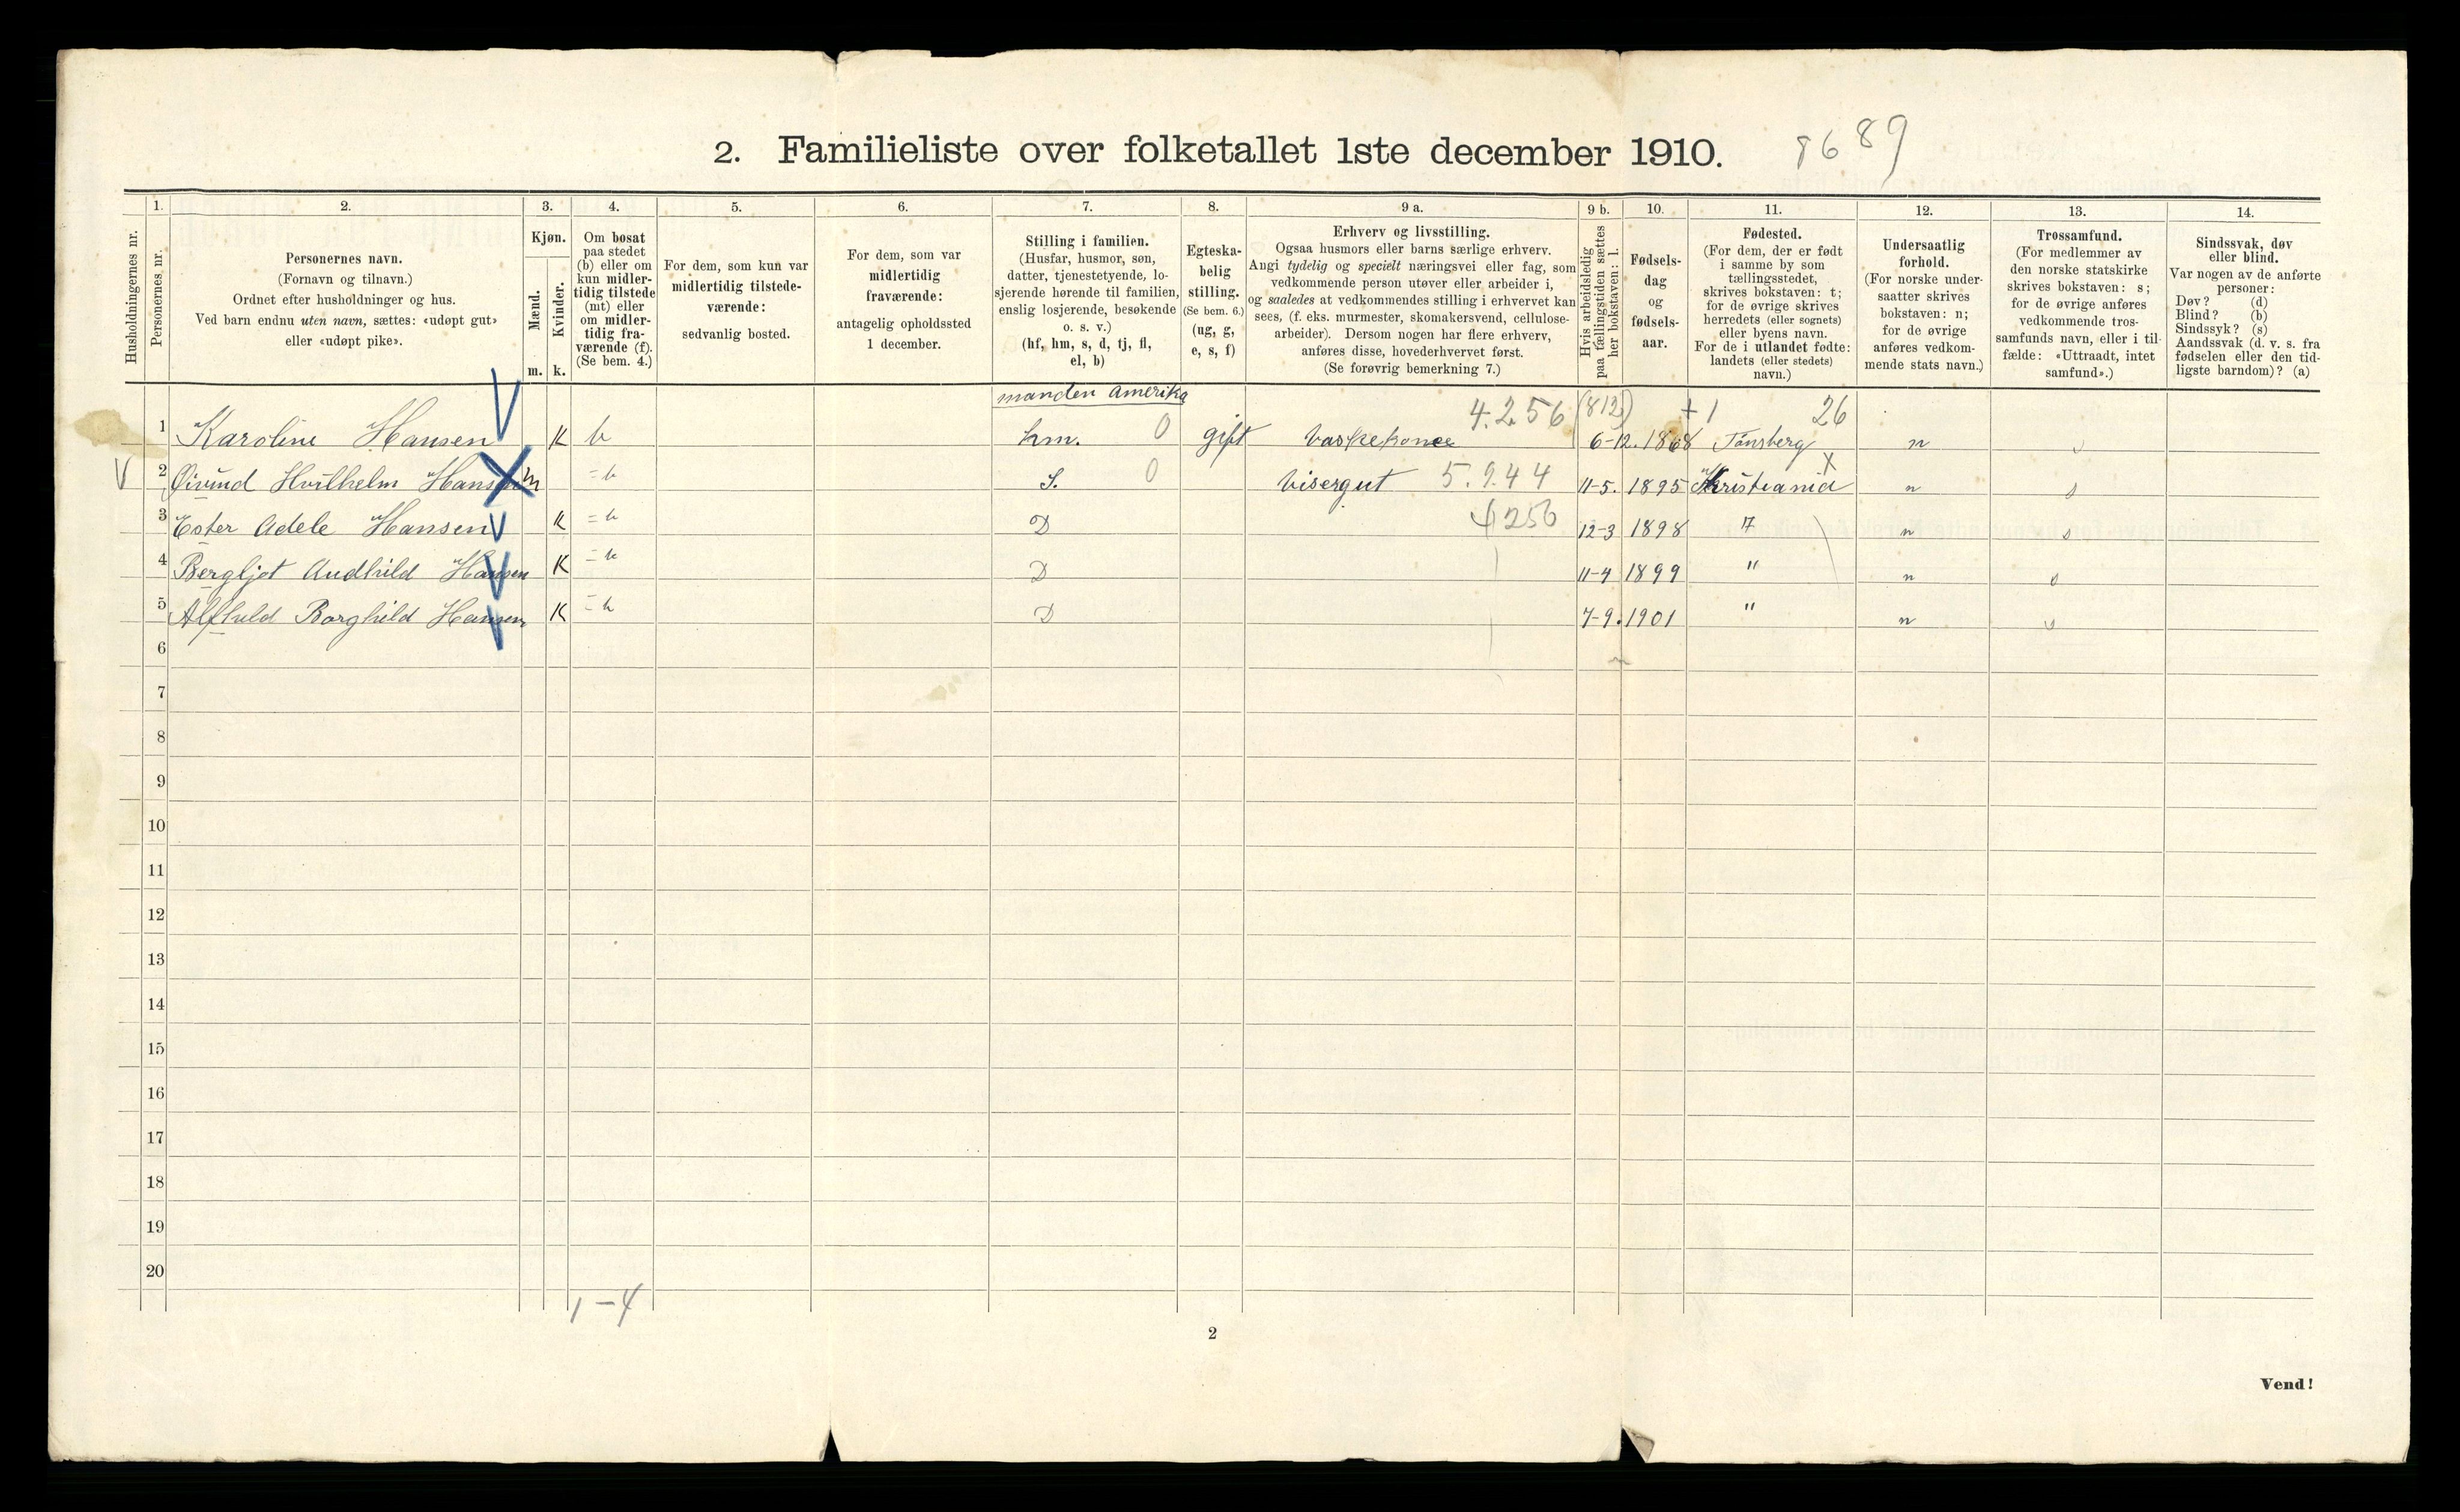 2. Familieliste over folketallet 1ste december 1910. 8689
Husholdningernes nr.
1. Personernes nr.
2. Personernes navn.
(Fornavn og tilnavn.)
Ordnet efter husholdninger og hus.
Ved barn endnu uten navn, sættes: «udøpt gut»
eller «udøpt pike».
3. Kjøn.
Mænd. m.
Kvinder. k.
4. Om bosat
paa stedet
(b) eller om
kun midler-
tidig tilstede
(mt) eller
om midler-
tidig fra-
værende (f).
(Se bem. 4.)
5. For dem, som kun var
midlertidig tilstede-
værende:
sedvanlig bosted.
6. For dem, som var
midlertidig
fraværende:
antagelig opholdssted
1 december.
7. Stilling i familien.
(Husfar, husmor, søn,
datter, tjenestetyende, lo-
sjerende hørende til familien,
enslig losjerende, besøkende
o. s. v.)
(hf, hm, s, d, tj, fl,
el, b)
8. Egteska-
belig
stilling.
(Se bem. 6.)
(ug, g,
e, s, f)
9 a. Erhverv og livsstilling.
Ogsaa husmors eller barns særlige erhverv.
Angi tydelig og specielt næringsvei eller fag, som
vedkommende person utøver eller arbeider i,
og saaledes at vedkommendes stilling i erhvervet kan
sees, (f. eks. murmester, skomakersvend, cellulose-
arbeider). Dersom nogen har flere erhverv,
anføres disse, hovederhvervet først.
(Se forøvrig bemerkning 7.)
9 b. Hvis arbeidsledig
paa tællingstiden sættes
her bokstaven: l.
10. Fødsels-
dag
og
fødsels-
aar.
11. Fødested.
(For dem, der er født
i samme by som
tællingsstedet,
skrives bokstaven: t;
for de øvrige skrives
herredets (eller sognets)
eller byens navn.
For de i utlandet fødte:
landets (eller stedets)
navn.)
12. Undersaatlig
forhold.
(For norske under-
saatter skrives
bokstaven: n;
for de øvrige
anføres vedkom-
mende stats navn.)
13. Trossamfund.
(For medlemmer av
den norske statskirke
skrives bokstaven: s;
for de øvrige anføres
vedkommende tros-
samfunds navn, eller i til-
fælde: «Uttraadt, intet
samfund».)
14. Sindssvak, døv
eller blind.
Var nogen av de anførte
personer:
Døv? (d)
Blind? (b)
Sindssyk? (s)
Aandssvak (d. v. s. fra
fødselen eller den tid-
ligste barndom)? (a)
manden Amerika
4.256 (812) +1 26
1 Karoline Hansen K b hm. 0 gift Vaskekone 6-12. 1868 Tønsberg n s
2 Øivind Hvilhelm Hansen m = b S. 0 Visergut 5.944 11-5. 1895 Kristiania X n s
3 Ester Adele Hansen K = b D 4256 12-3 1898 " n s
4 Bergljot Audhild Hansen K = b D 11-4 1899 " n s
5 Alfhild Borghild Hansen K = b D 7-9. 1901 " n s
6
7
8
9
10
11
12
13
14
15
16
17
18
19
20
1-4
2
Vend!